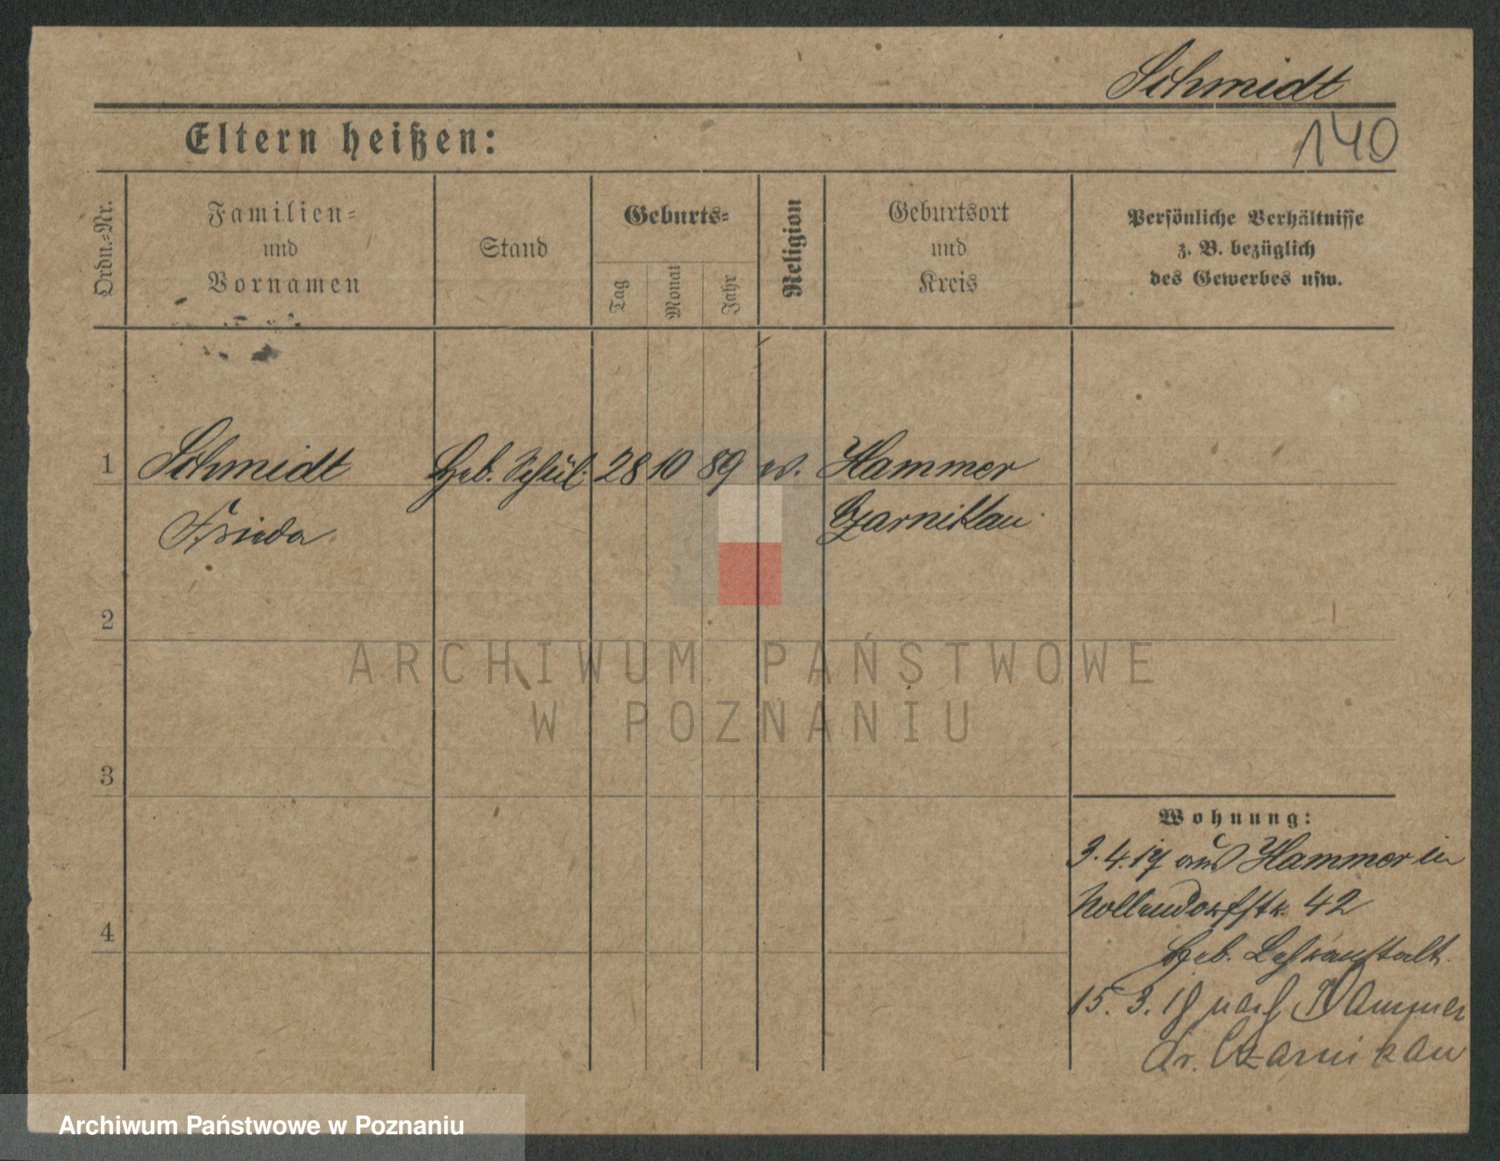 Schmidt
140
Eltern heißen:
Ordn.-Nr.
Familien-
und
Vornamen
Stand
Geburts-
Tag
Monat
Jahr
Religion
Geburtsort
und
Kreis
Persönliche Verhältnisse
z. B. bezüglich
des Gewerbes usw.
1 Schmidt Heb. Schül. 28 10 89 ev. Hammer
Frieda Czarnikau
2
3
4
Wohnung:
3.4.17 aus Hammer in
Nollendorfstr. 42
Heb. Lehranstalt.
15.3.18 nach Hammer
Kr. Czarnikau
ARCHIWUM PAŃSTWOWE
W POZNANIU
Archiwum Państwowe w Poznaniu